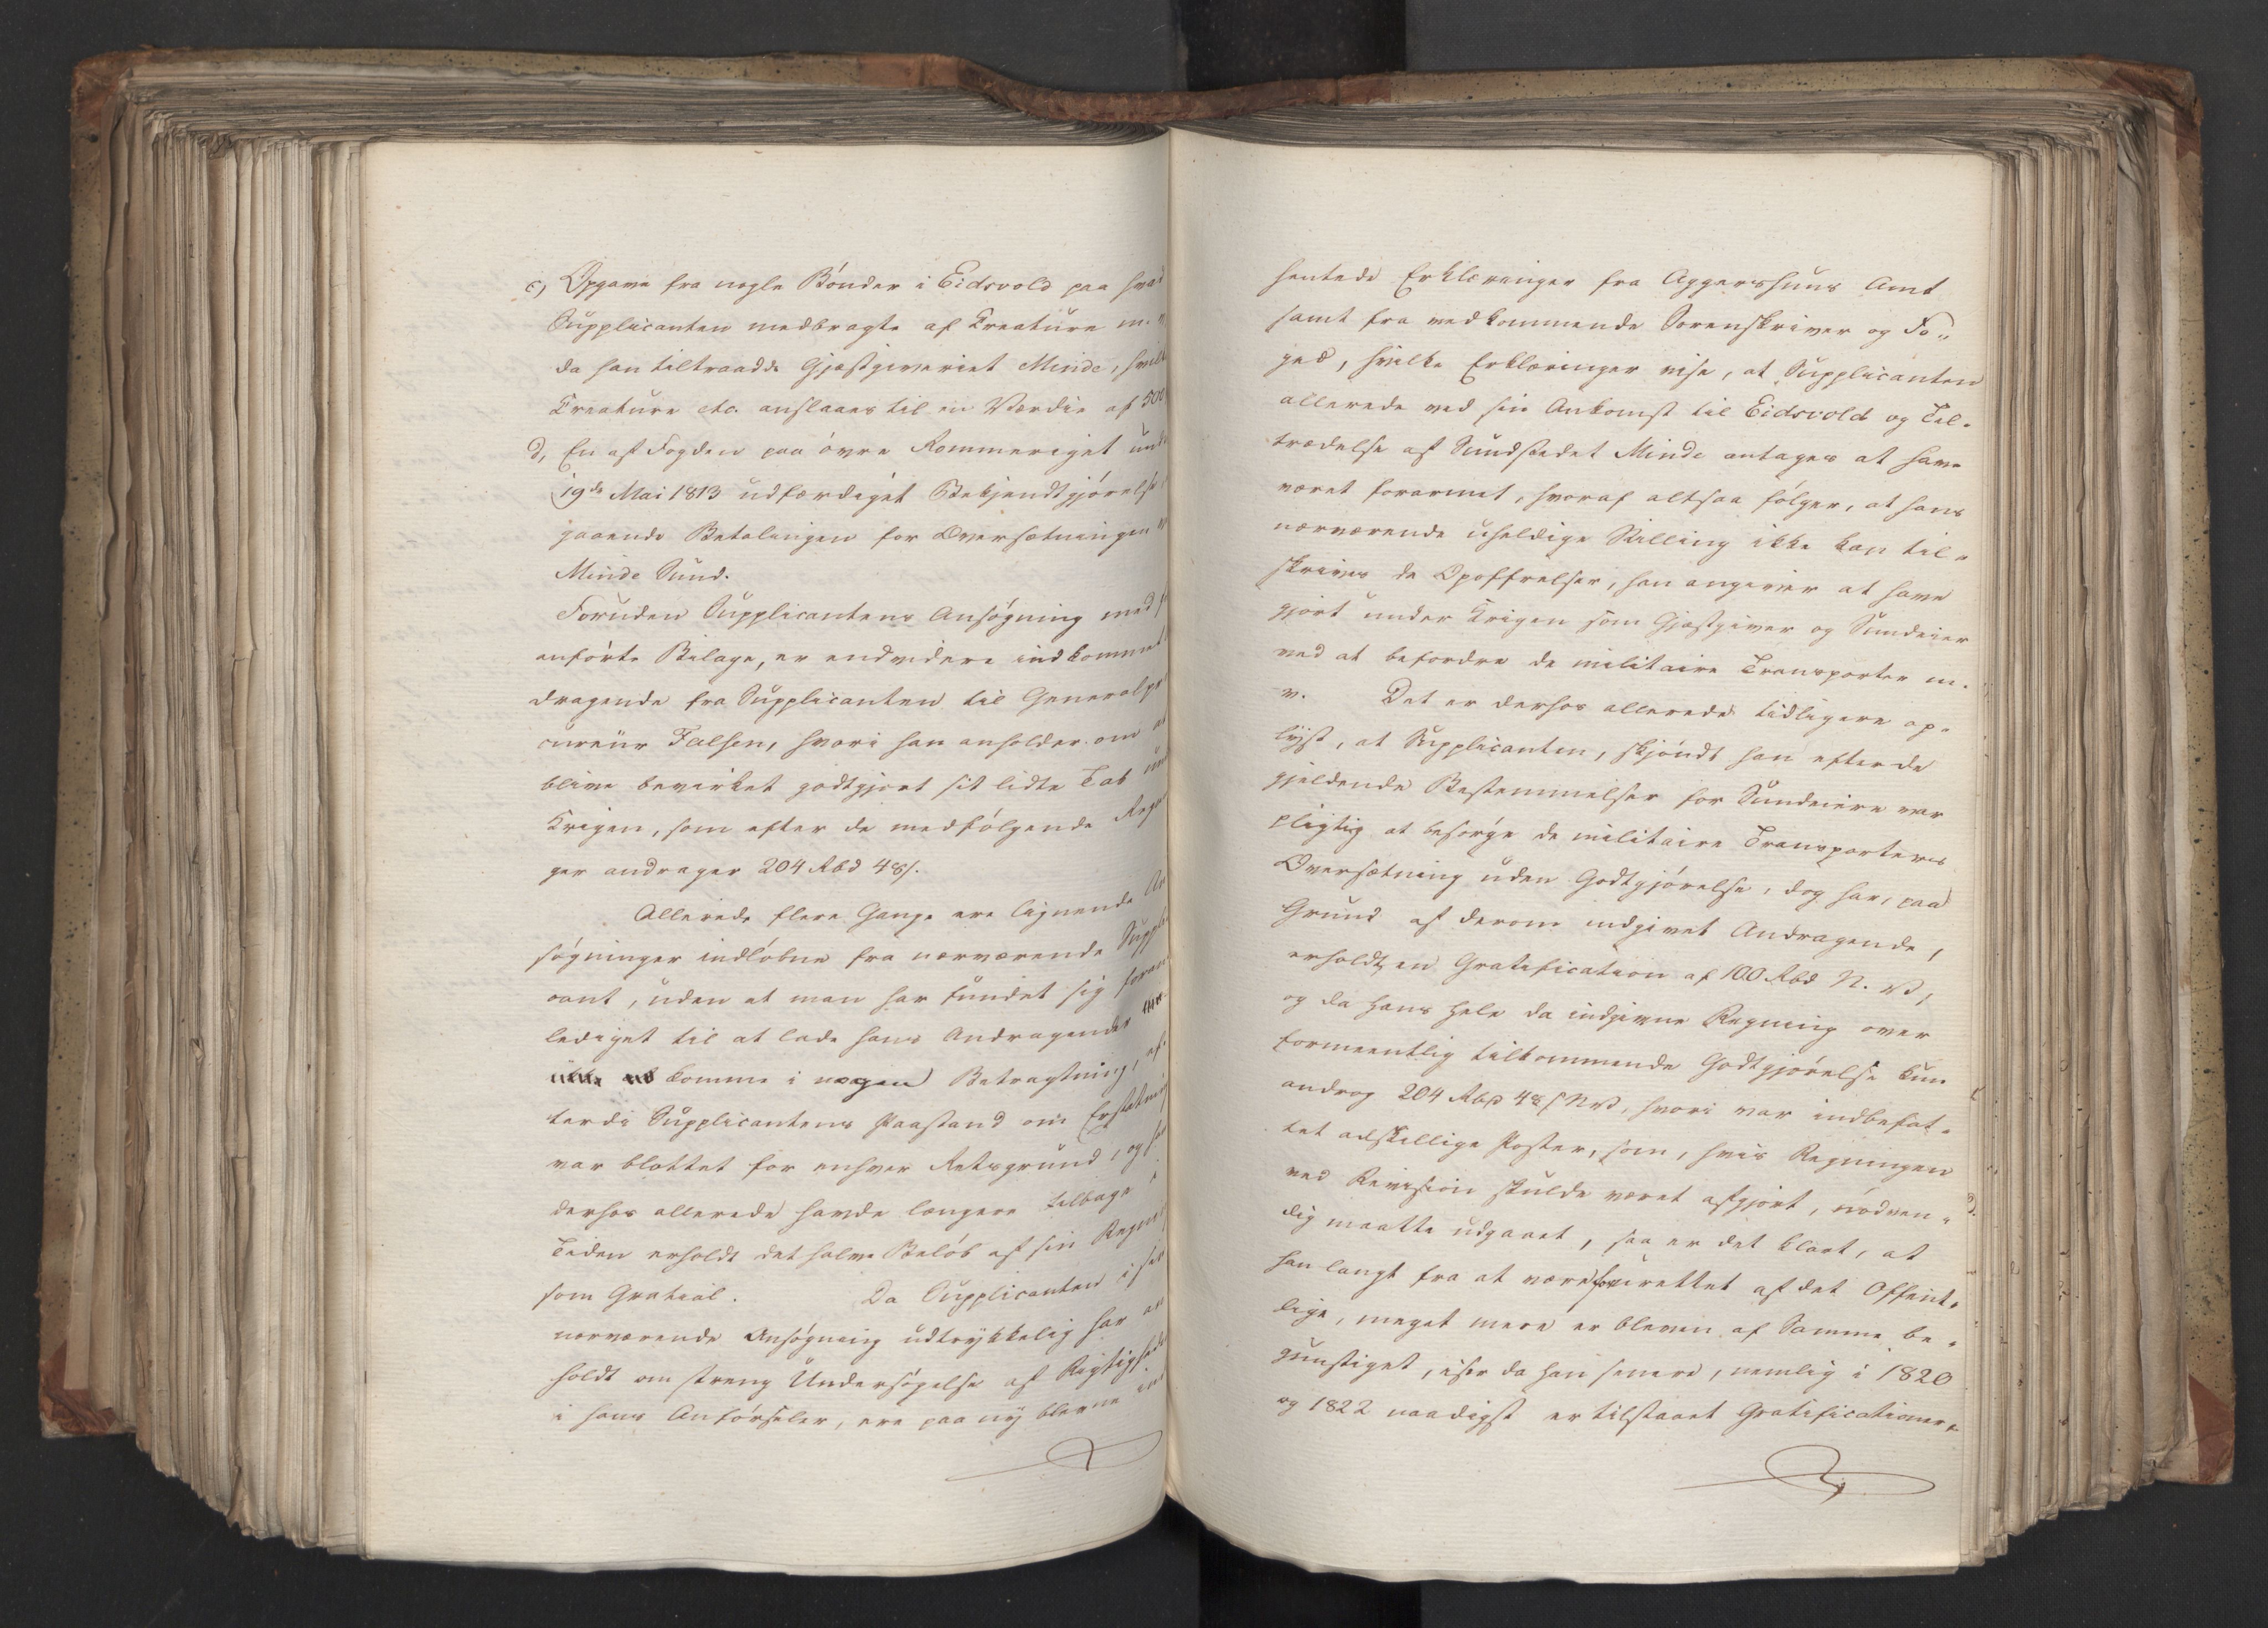 c) Opgave fra nogle Bønder i Eidsvold paa hvad
Supplicanten medbragte af Creature m. 
da han tiltraadde Gjæstgiveriet Minde, hvilk
Creature etc. anslaaes til en Værdie af 500
d, En af Fogden paa øvre Rommeriget und
19de Mai 1813 udfærdiget Bekjendtgjørelse
gaaende Betalingen for Oversætningen
Minde Sund.
Foruden Supplicantens Ansøgning med
anførte Bilage, er endvidere indkommet
dragende fra Supplicanten til Generalpr
cureur Falsen, hvori han anholder om at
blive bevirket godtgjort sit lidte Tab und
Krigen, som efter de medfølgende Regn
ger andrager 204 Rbd 48/.
Allerede flere Gange ere lignende An
søgninger indløbne fra nærværende Suppli
cant, uden at man har fundet sig foran
lediget til at lade hans Andragender
komme i nogen Betragtning, ef
terdi Supplicantens Paastand om Erstatning
var blottet for enhver Retsgrund, og han
derhos allerede havde længere tilbage i
Tiden erholdt det halve Beløb af sin Regning
som Gratial. Da Supplicanten i sin
nærværende Ansøgning udtrykkelig har an
holdt om streng Undersøgelse af Rigtigheden
i hans Anførseler, ere paa ny blevne ind
hentede Erklæringer fra Aggershuus Amt
samt fra vedkommende Sorenskriver og Fo„
ged, hvilke Erklæringer vise, at Supplicanten
allerede ved sin Ankomst til Eidsvold og Til„
trædelse af Sundstedet Minde antages at have
været forarmet, hvoraf altsaa følger, at hans
nærværende uheldige Stilling ikke kan til„
skrives de Opoffrelser, han angiver at have
gjort under Krigen som Gjæstgiver og Sundeier
ved at befordre de militaire Transporter m.
v. Det er derhos allerede tidligere op„
lyst, at Supplicanten, skjøndt han efter de
gjeldende Bestemmelser for Sundeiere var
pligtig at besørge de militaire Transporters
Oversætning uden Godtgjørelse, dog har, paa
Grund af derom indgivet Andragende,
erholdt en Gratification af 100 Rbd N. V,
og da hans hele da indgivne Regning over
formeentlig tilkommende Godtgjørelse kun
androg 204 Rbd 48 / NV, hvori var indbefat„
tet adskillige Poster, som, hvis Regningen
ved Revision skulde været afgjort, nødven„
dig maatte udgaaet, saa er det klart, at
han langt fra at være forurettet af det Offent„
lige, meget mere er bleven af Samme be„
gunstiget, især da han senere, nemlig i 1820
og 1822 naadigst er tilstaaet Gratificationer,